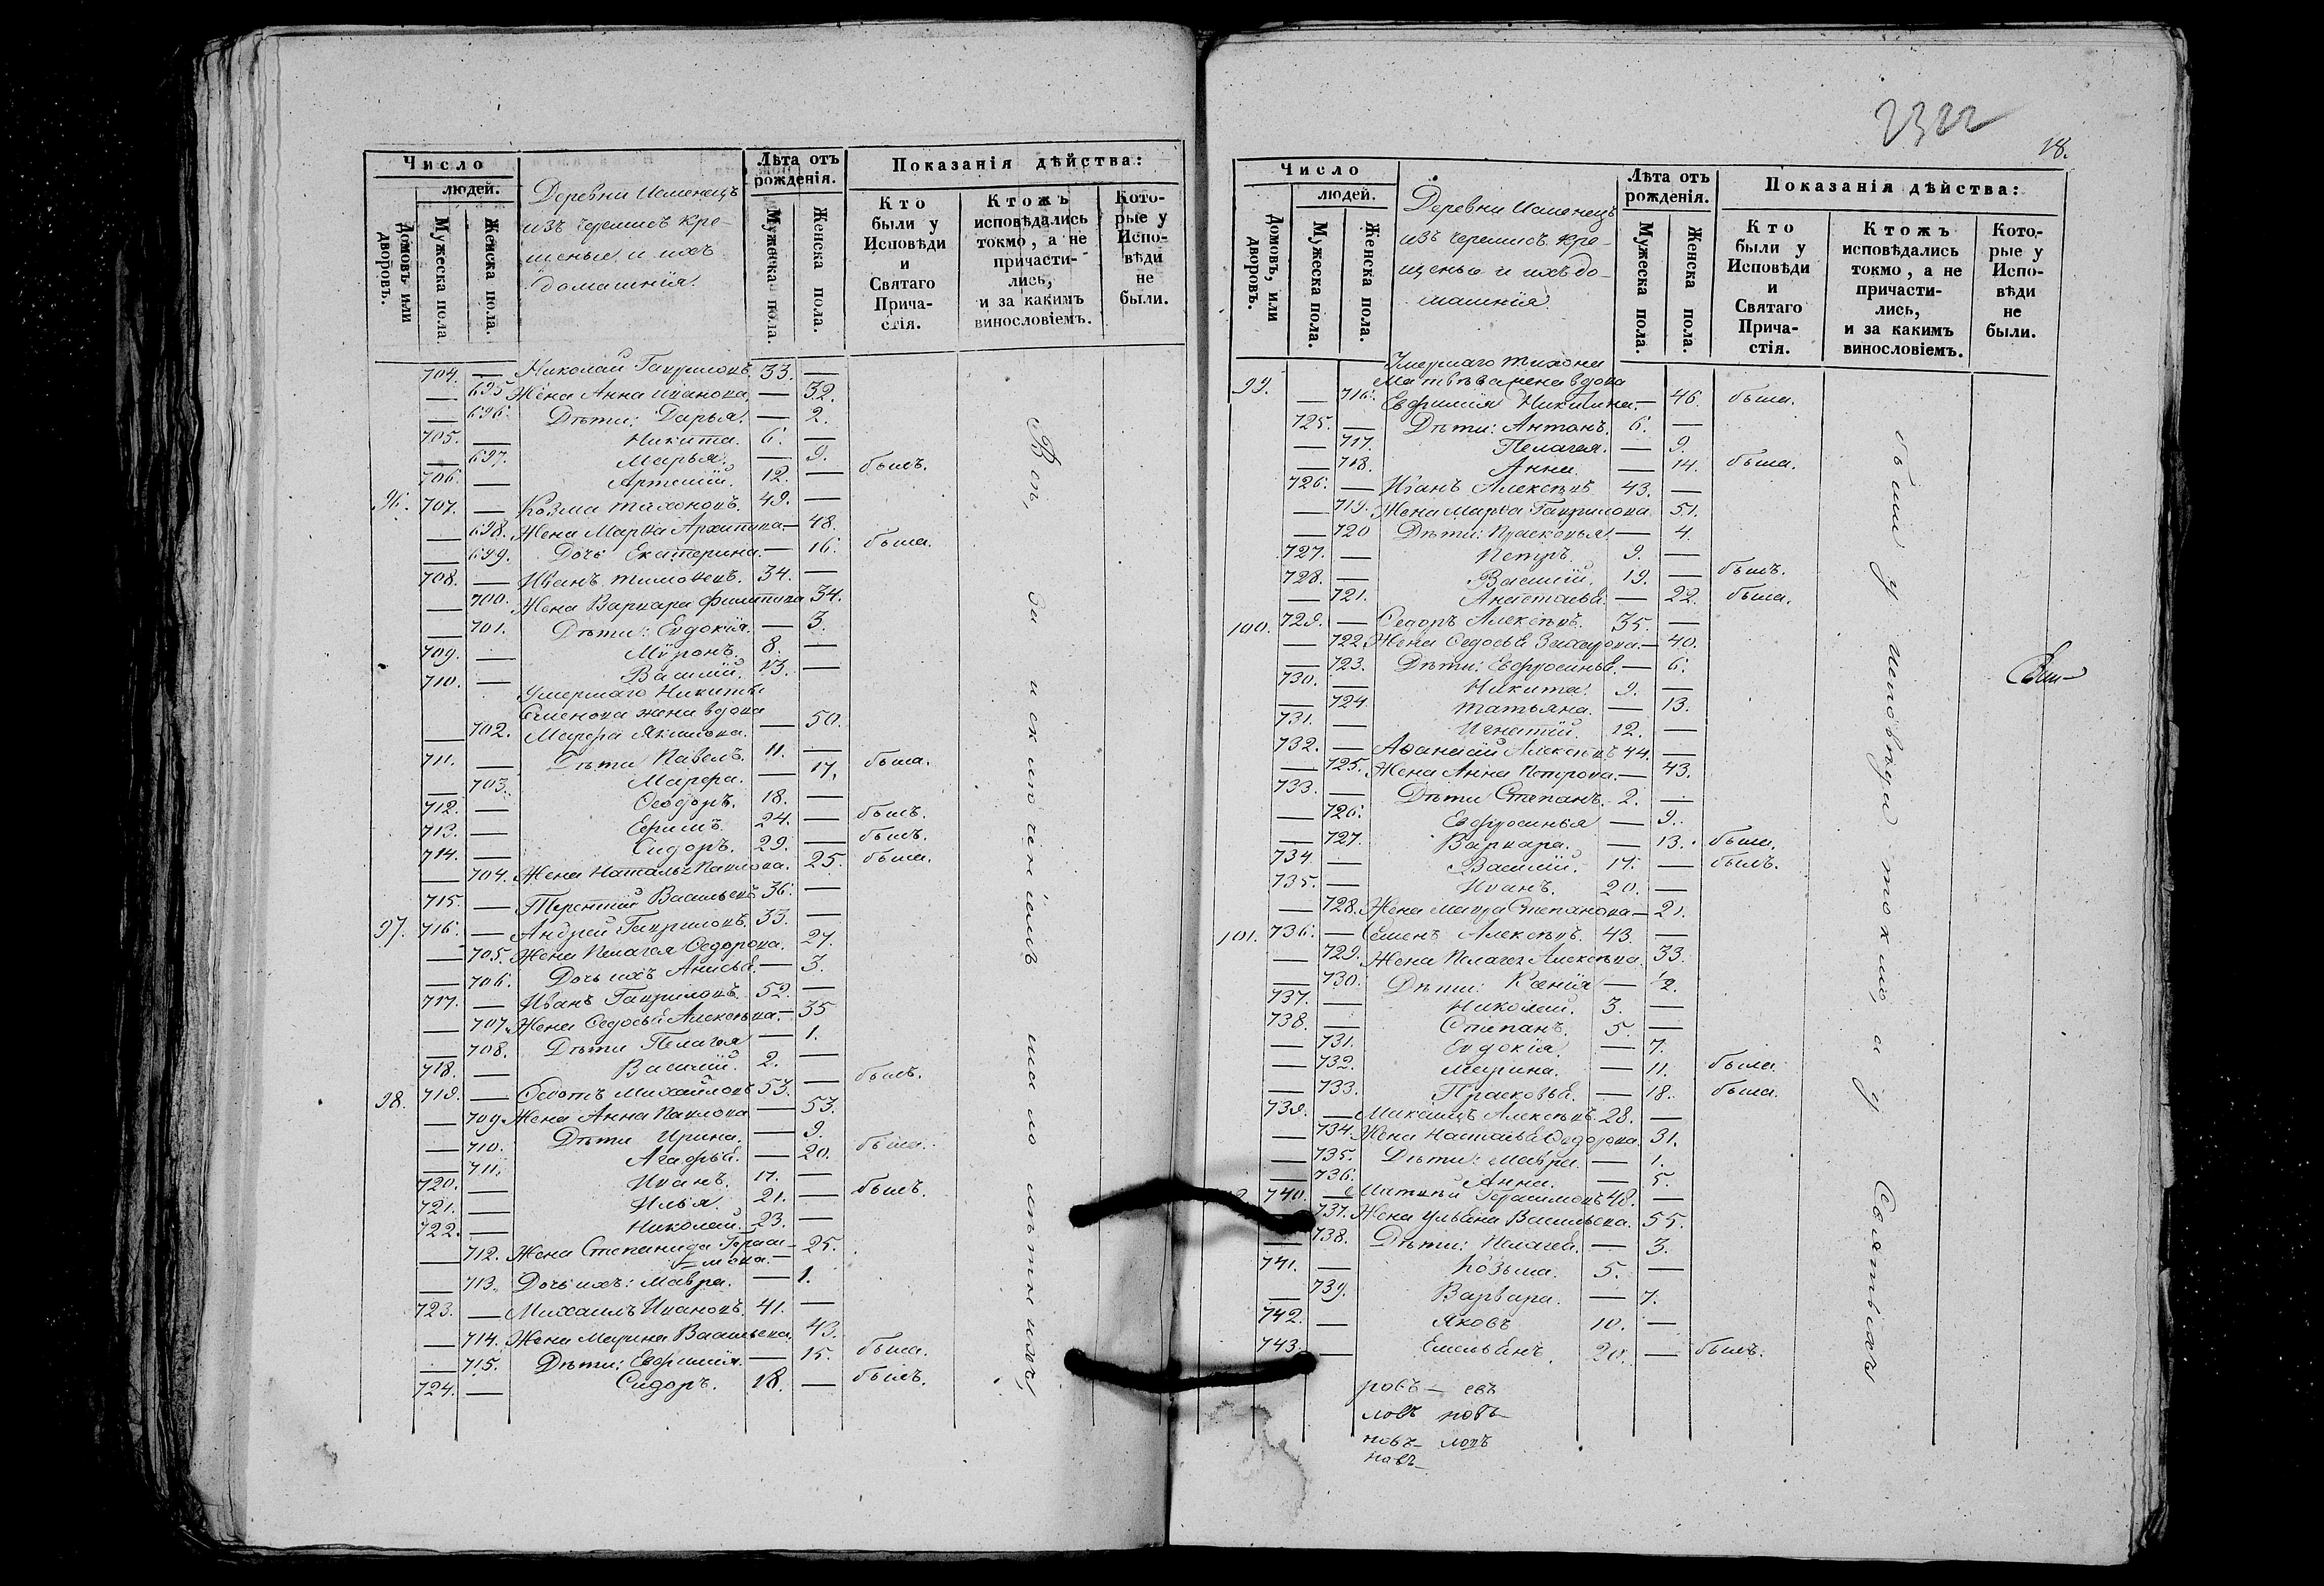 Число
людей.
Домовъ или дворовъ.
Мужеска пола
Женска пола.
Деревни Исменецъ
изъ черемисъ кре-
щеные и ихъ
домашнія.
Лѣта отъ рожденія.
Мужеска пола.
Женска пола.
Показанія дѣйства:
Кто были у Исповѣди и Святаго Причастія.
Ктожъ исповѣдались токмо, а не причастились, и за какимъ винословіемъ.
Которые у Исповѣди не были.
704. — Николай Гавриловъ. 33. —
— 695 Жена Анна Иванова. — 32.
— 696. Дѣти: Дарья. — 2.
705. — Никита. 6. —
— 697. Марья. — 9.
706. — Артемій. 12. — былъ.
96. 707. — Козма Тихоновъ. 49. —
— 698. Жена Марѳа Архипова — 48.
— 699. Дочь Екатерина. — 16. была.
708. — Иванъ Тимоѳеевъ. 34. —
— 700. Жена Варвара Филипова 34.
— 701. Дѣти: Евдокія. — 3.
709. — Мѵронъ. 8. —
710. — Василій. 13. —
Умершаго Никиты
Семенова жена вдова
— 702. Марфа Якимова. — 50.
711. — Дѣти Павелъ. 11. —
— 703. Марфа. — 17. была.
712. — Ѳеодоръ. 18. —
713. — Ефимъ. 24. — былъ.
714. — Сидоръ. 29. — былъ.
— 704. Жена Наталья Павлова. 25. была.
715. — Терентій Васильевъ 36. —
97. 716. — Андрей Гавриловъ. 33. —
— 705. Жена Пелагея Ѳедорова. 27.
— 706. Дочь ихъ Анисья. — 3.
717. — Иванъ Гавриловъ. 52. —
— 707. Жена Ѳедосья Алексѣева. — 35
— 708. Дѣти Пелагея — 1.
718. — Василій. 2. —
98. 719. — Ѳедотъ Михайловъ 53. — былъ.
— 709. Жена Анна Павлова — 53.
— 710. Дѣти Ирина. — 9.
— 711. Агафья. — 20. была.
720. — Иванъ. 17. —
721. — Илья. 21. — былъ.
722. — Николай. 23. —
— 712. Жена Степанида Гераси-
мова. — 25.
— 713. Дочь ихъ: Мавра. — 1.
723. — Михаилъ Ивановъ. 41. —
— 714. Жена Марина Васильева. 43.
— 715. Дѣти: Евфимія. — 15. была.
724. — Сидоръ. 18. — былъ.
Всѣ, за исключеніемъ малолѣтнихъ,
2322
18.
Число
людей.
Домовъ, или дворовъ.
Мужеска пола.
Женска пола.
Деревни Исменецъ
изъ черемисъ кре-
щеные и ихъ до-
машнія.
Лѣта отъ рожденія.
Мужеска пола.
Женска пола.
Показанія дѣйства:
Кто были у Исповѣди и Святаго Причастія.
Ктожъ исповѣдались токмо, а не причастились, и за какимъ винословіемъ.
Которые у Исповѣди не были.
Умершаго Тихона
Матвѣева жена вдова
99. — 716. Евфимія Никитина. — 46. была.
725. — Дѣти: Антонъ. 6. —
— 717. Пелагея. — 9.
— 718. Анна. — 14. была.
726. — Иванъ Алексѣевъ 43. —
— 719. Жена Марѳа Гаврилова 51.
— 720 Дѣти: Прасковья — 4.
727. — Петръ. 9. —
728. — Василій. 19. — былъ.
— 721. Анастасья. — 22. была.
100. 729. — Ѳедоръ Алексѣевъ. 35. —
— 722. Жена Ѳедосья Захарова. — 40.
— 723. Дѣти: Евфросинья. — 6.
730. — Никита. 9. —
— 724. Татьяна. — 13.
731. — Игнатій. 12. —
732. — Аѳанасій Алексѣевъ 44. —
— 725. Жена Анна Петрова. — 43.
733. — Дѣти Степанъ. 2. —
— 726. Евфросинья — 9.
— 727. Варвара. — 13. была.
734 — Василій. 17. — былъ.
735. — Иванъ. 20. —
— 728. Жена Мавра Степанова — 21.
101. 736. — Семенъ Алексѣевъ. 43. —
— 729. Жена Пелагея Алексѣева. 33.
— 730. Дѣти: Ксенія — 2.
737. — Николай. 3. —
738. — Степанъ. 5. —
— 731. Евдокія. — 7.
— 732. Марина. — 11. была.
— 733. Прасковья. — 18. была.
739. — Михаилъ Алексѣевъ. 28. —
— 734. Жена Настасья Ѳедорова. 31.
— 735. Дѣти: Мавра. — 1.
— 736. Анна. — 5.
740. — Матвѣй Герасимовъ 48. —
— 737. Жена Ульяна Васильева. 55.
— 738. Дѣти: Пелагея. — 3.
741. — Козьма. 5. —
— 739. Варвара. — 7.
742. — Яковъ 10. —
743. — Емельянъ. 20. — былъ.
были у исповѣди токмо, а у Святыхъ
ровъ — евъ
ловъ новъ
новъ — ловъ
новъ —